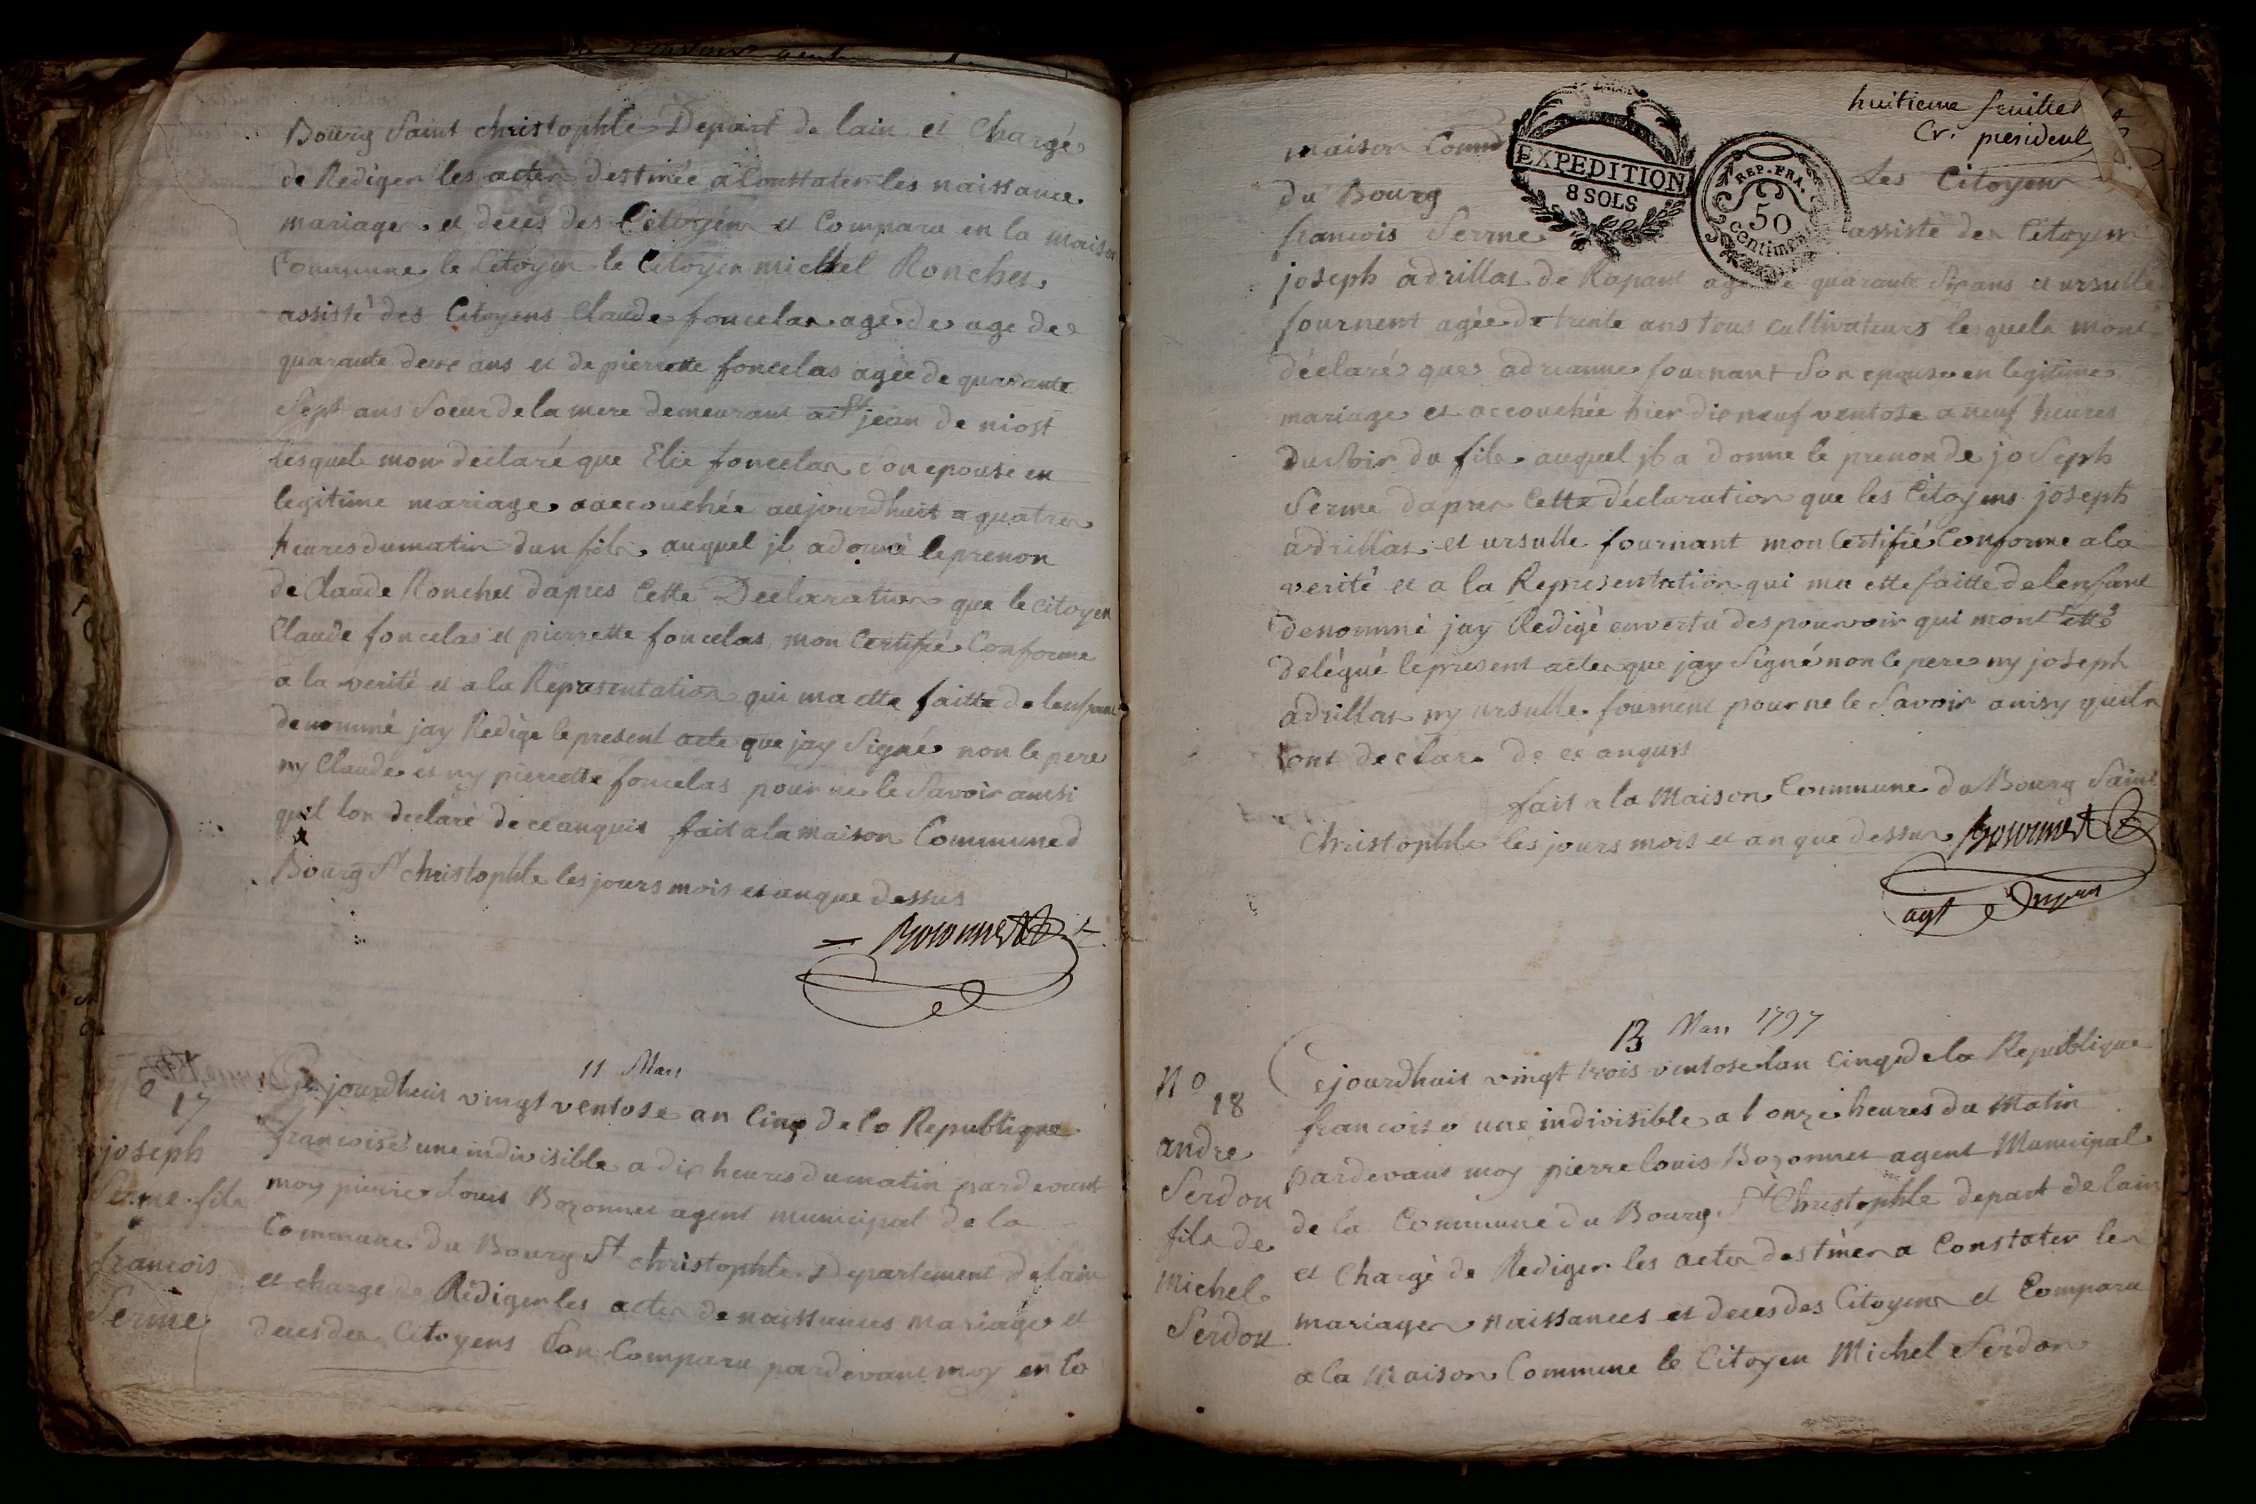 Bourg Saint christophle Depart de lain et Chargé
de Rediger les actes destinée a Constater les naissance
mariages et deces des Citoyens et Comparu en la maison
Commune le Citoyen le Citoyen michel Ronchet
assisté des Citoyens Claude foncelas age de age de
quarante deux ans et de pierrette foncelas agée de quarante
Sept ans Soeur de la mere demeurant a St jean de niost
lesquels mon declaré que Elie foncelas son epouse en
legitime mariage a accouchée aujourdhuit a quatre
heures du matin dun fils auquel jl a donné le prenon
de Claude Ronchet dapres Cette Declaration que le citoyen
Claude foncelas et pierrette foncelas mon Certifié Conforme
a la verité et a la Representation qui ma ette faitte de lenfant
denommé jay Redige le present acte que jay Signé non le pere
ny Claude et ny pierrette foncelas pour ne le Savoir ainsi
quil lon declaré de ce anquis fait a la maison Commune d
Bourg St christophle les jours mois et an que dessus
Bozonnet
11 Mars
No 17
joseph
Serme fils
francois
Serme
Ce jourdhuis vingt ventose an Cinq de la Republique
francoise une indivisible a dix heures du matin pardevant
moy pierre Louis Bozonnet agent municipal de la
Commune du Bourg St christophle Departement de lain
et charge de Rédiger les actes de naissances mariages et
deces des Citoyens Son Comparu pardevant moy en la
huitieme feuillet
Cr. president
EXPEDITION
8 SOLS
REP. FRA.
50
centimes
maison Comm
du Bourg Les Citoyens
francois Serme assisté des Citoyens
joseph adrillas de Rapant agé de quarante Six ans et ursulle
fournent agée de trente ans tous cultivateurs lesquels mont
déclaré que adrianne fournant Son epouse en legitime
mariage et accouchée hier dix neuf ventose a neuf heures
du Soir du fils auquel jl a donne le prenon de joseph
Serme dapres Cette déclaration que les Citoyens joseph
adrillas et ursulle fournant mon Certifié Conforme a la
verité et a la Representation qui ma ette faitte de lenfant
denommé jay Redigé en vertu des pouvoir qui mont étté
delégué le present actes que jay Signé non le pere ny joseph
adrillas ny ursulle fournent pour ne le Savoir ainsy quils
lont declare de ce anquis
fait a la Maison Commune du Bourg Saint
Christophle les jours mois et an que dessus Bozonnet
agt
13 Mars 1797
No 18
andre
Serdon
fils de
Michel
Serdon
Cejourdhuit vingt trois ventose lan Cinq de la Republique
francoise une indivisible a l onze heures du Matin
pardevant moy pierre louis Bozonnet agent Municipal
de la Commune du Bourg St Christophle depart de lain
et Chargé de Rediger les actes destinés a Constater les
mariages naissances et deces des Citoyens et Comparu
a la Maison Commune le Citoyen Michel Serdon